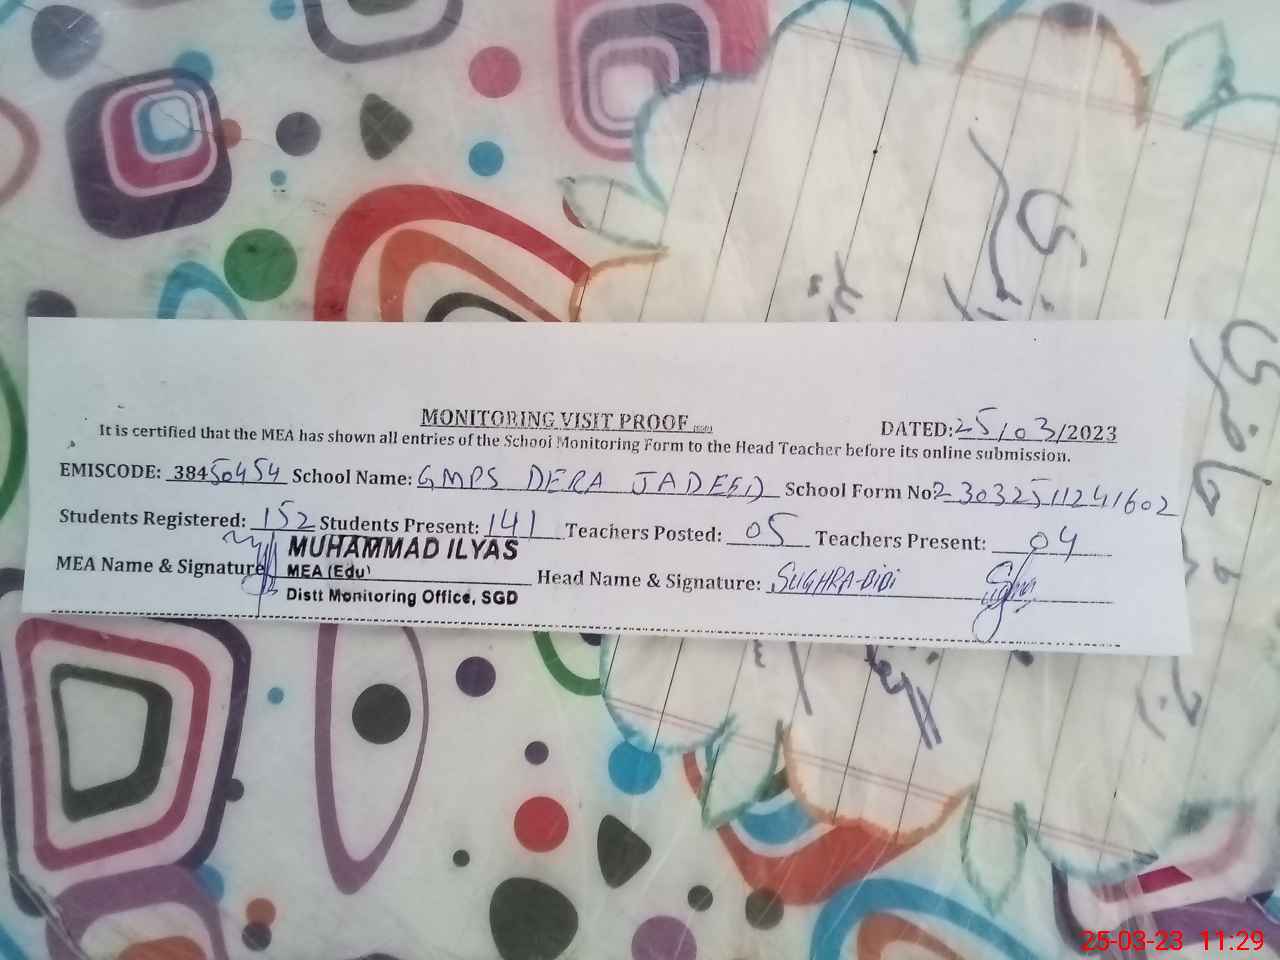 MONITORING VISIT PROOF
DATED: 25/03/2023
It is certified that the MEA has shown all entries of the School Monitoring Form to the Head Teacher before its online submission.
EMISCODE: 38450454 School Name: GMPS DERA JADEED School Form No 23032511241602
Students Registered: 152 Students Present: 141 Teachers Posted: 05 Teachers Present: 04
MEA Name & Signature MUHAMMAD ILYAS Head Name & Signature: SUGHRA-BiBi
MEA (Edu)
Distt Monitoring Office, SGD
25-03-23 11:29